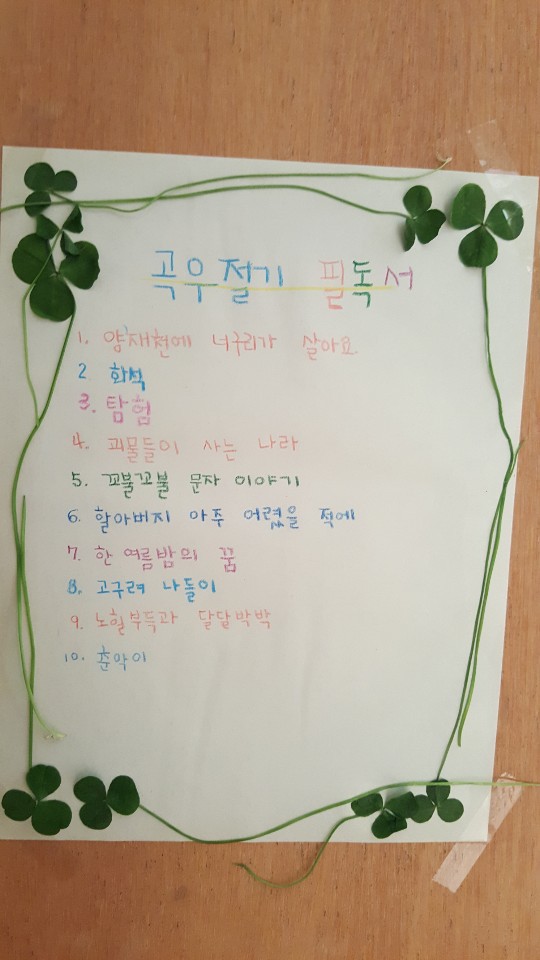 곡우절기 필독서
1. 양재천에 너구리가 살아요
2 화석
3. 탐험
4. 괴물들이 사는 나라
5. 꼬불꼬불 문자 이야기
6. 할아버지 아주 어렸을 적에
7. 한 여름밤의 꿈
8. 고구려 나들이
9. 노힐부득과 달달박박
10. 춘악이